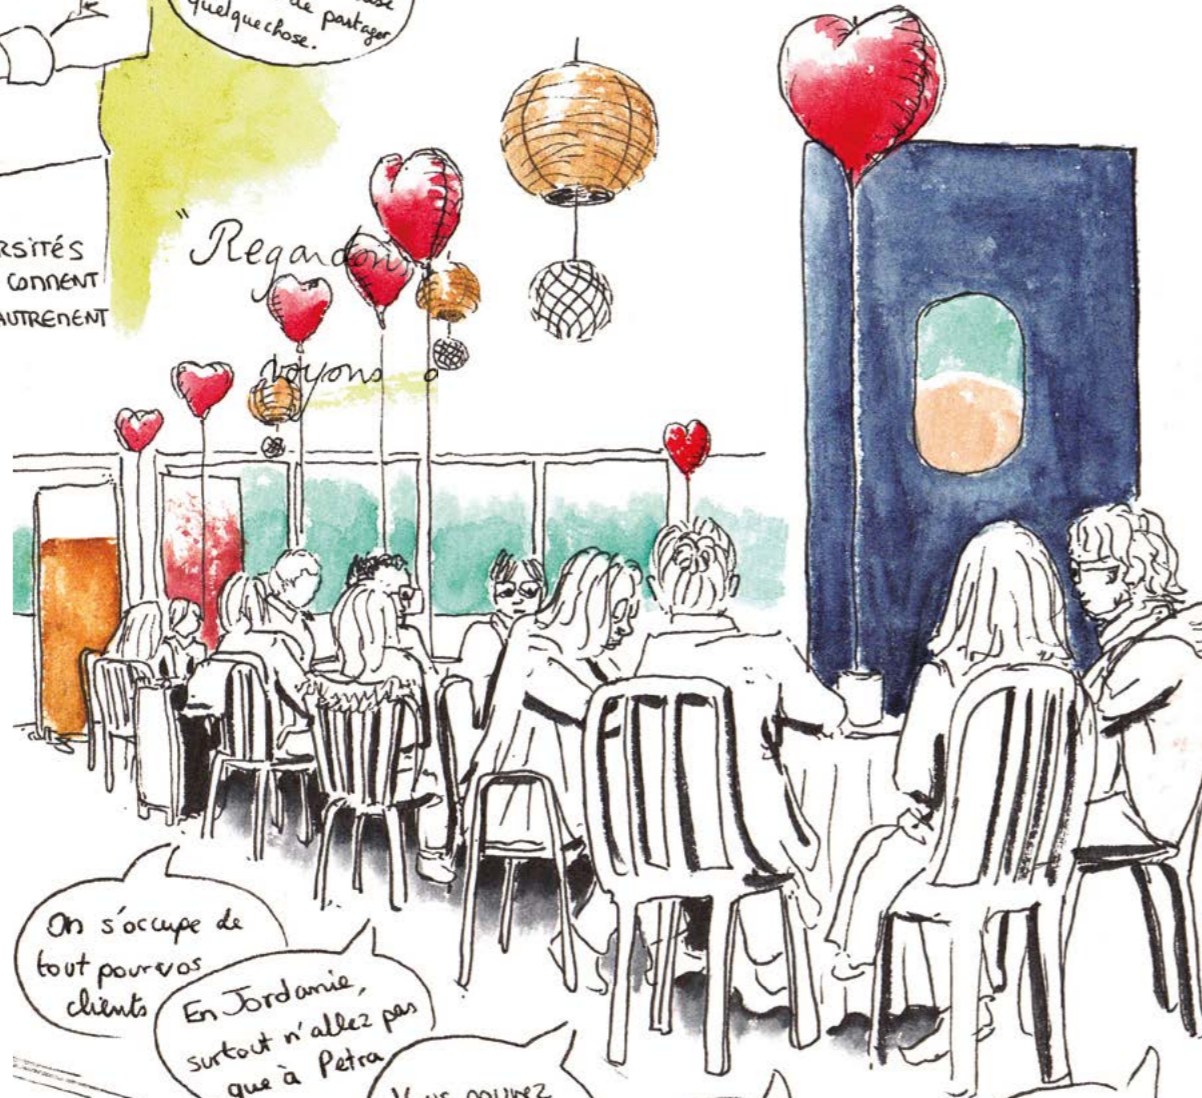 de partager
quelquechose.
RSITÉS
COMMENT
AUTREMENT
"Regardons
voyons
On s'occupe de
tout pour vos
clients
En Jordanie,
surtout n'allez pas
que à Petra
Vous pouvez